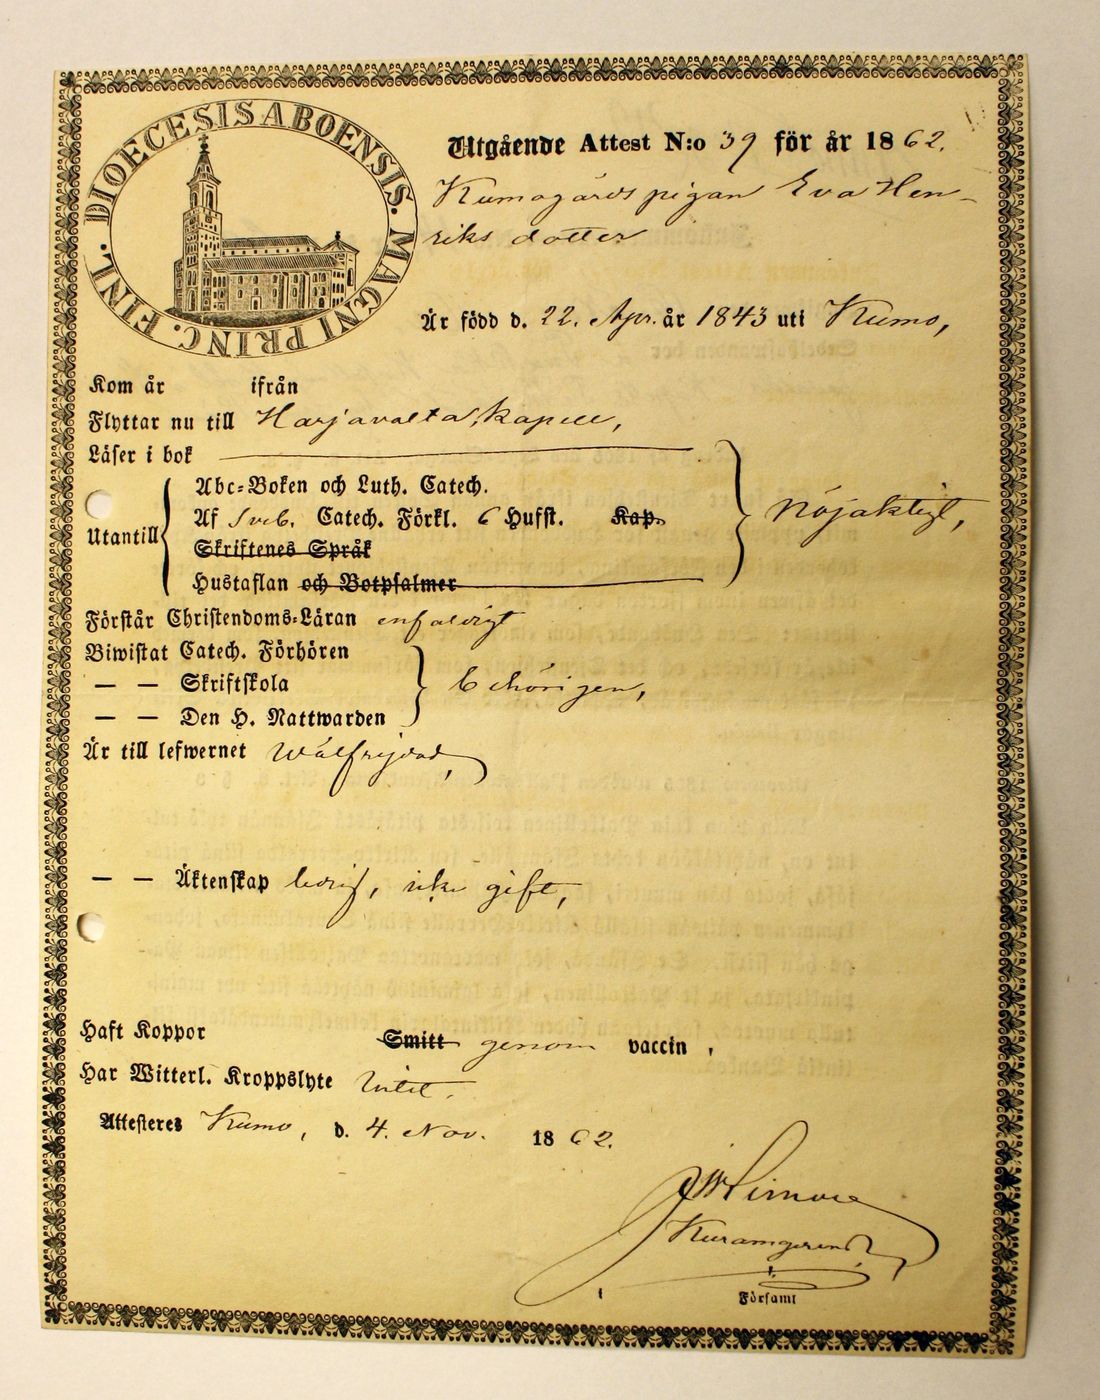 DIOECESIS ABOENSIS. MAGNI PRINC. FINL.
Utgående Attest N:o 39 för år 1862.
Kumogårds pigan Eva Hen-
riks dotter
Är född d. 22. Apr. år 1843 uti Kumo,
Kom år ifrån
Flyttar nu till Harjavalta, kapell,
Läser i bok
Abc-Boken och Luth. Catech.
Utantill Af Sveb. Catech. Förkl. 6 Hufst. Kap. Nöjaktigt,
Skriftenes Språk
Hustaflan och Botpsalmer
Förstår Christendoms-Läran enfaldigt
Biwistat Catech. Förhören
— — Skriftskola behörigen,
— — Den H. Nattwarden
Är till lefwernet Wälfrejdad,
— — Äktenskap ledig, icke gift,
Haft Koppor Smitt genom vaccin,
Har Witterl. Kroppslyte Intet.
Attesteres Kumo, d. 4. Nov. 1862.
Församl